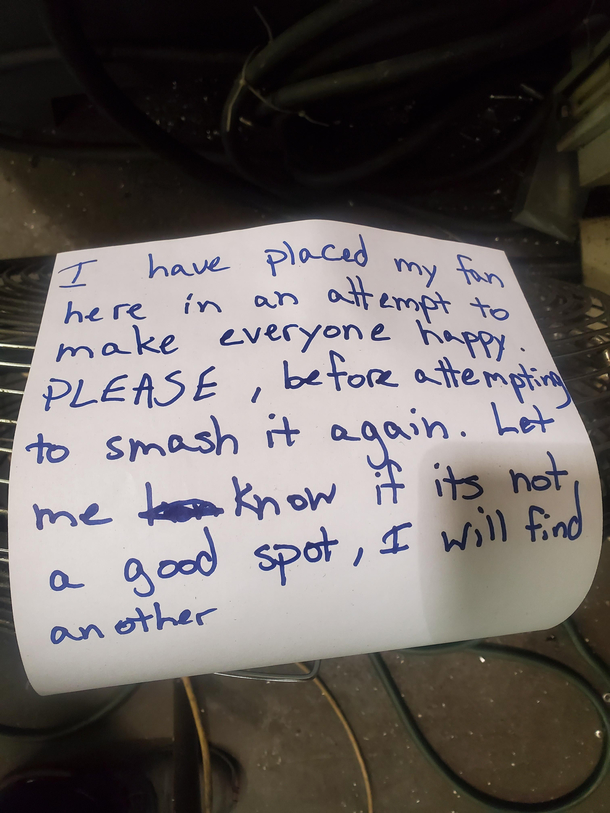 I have placed my fan
here in an attempt to
make everyone happy.
PLEASE, before attempting
to smash it again. Let
me know if its not
a good spot, I will find
another